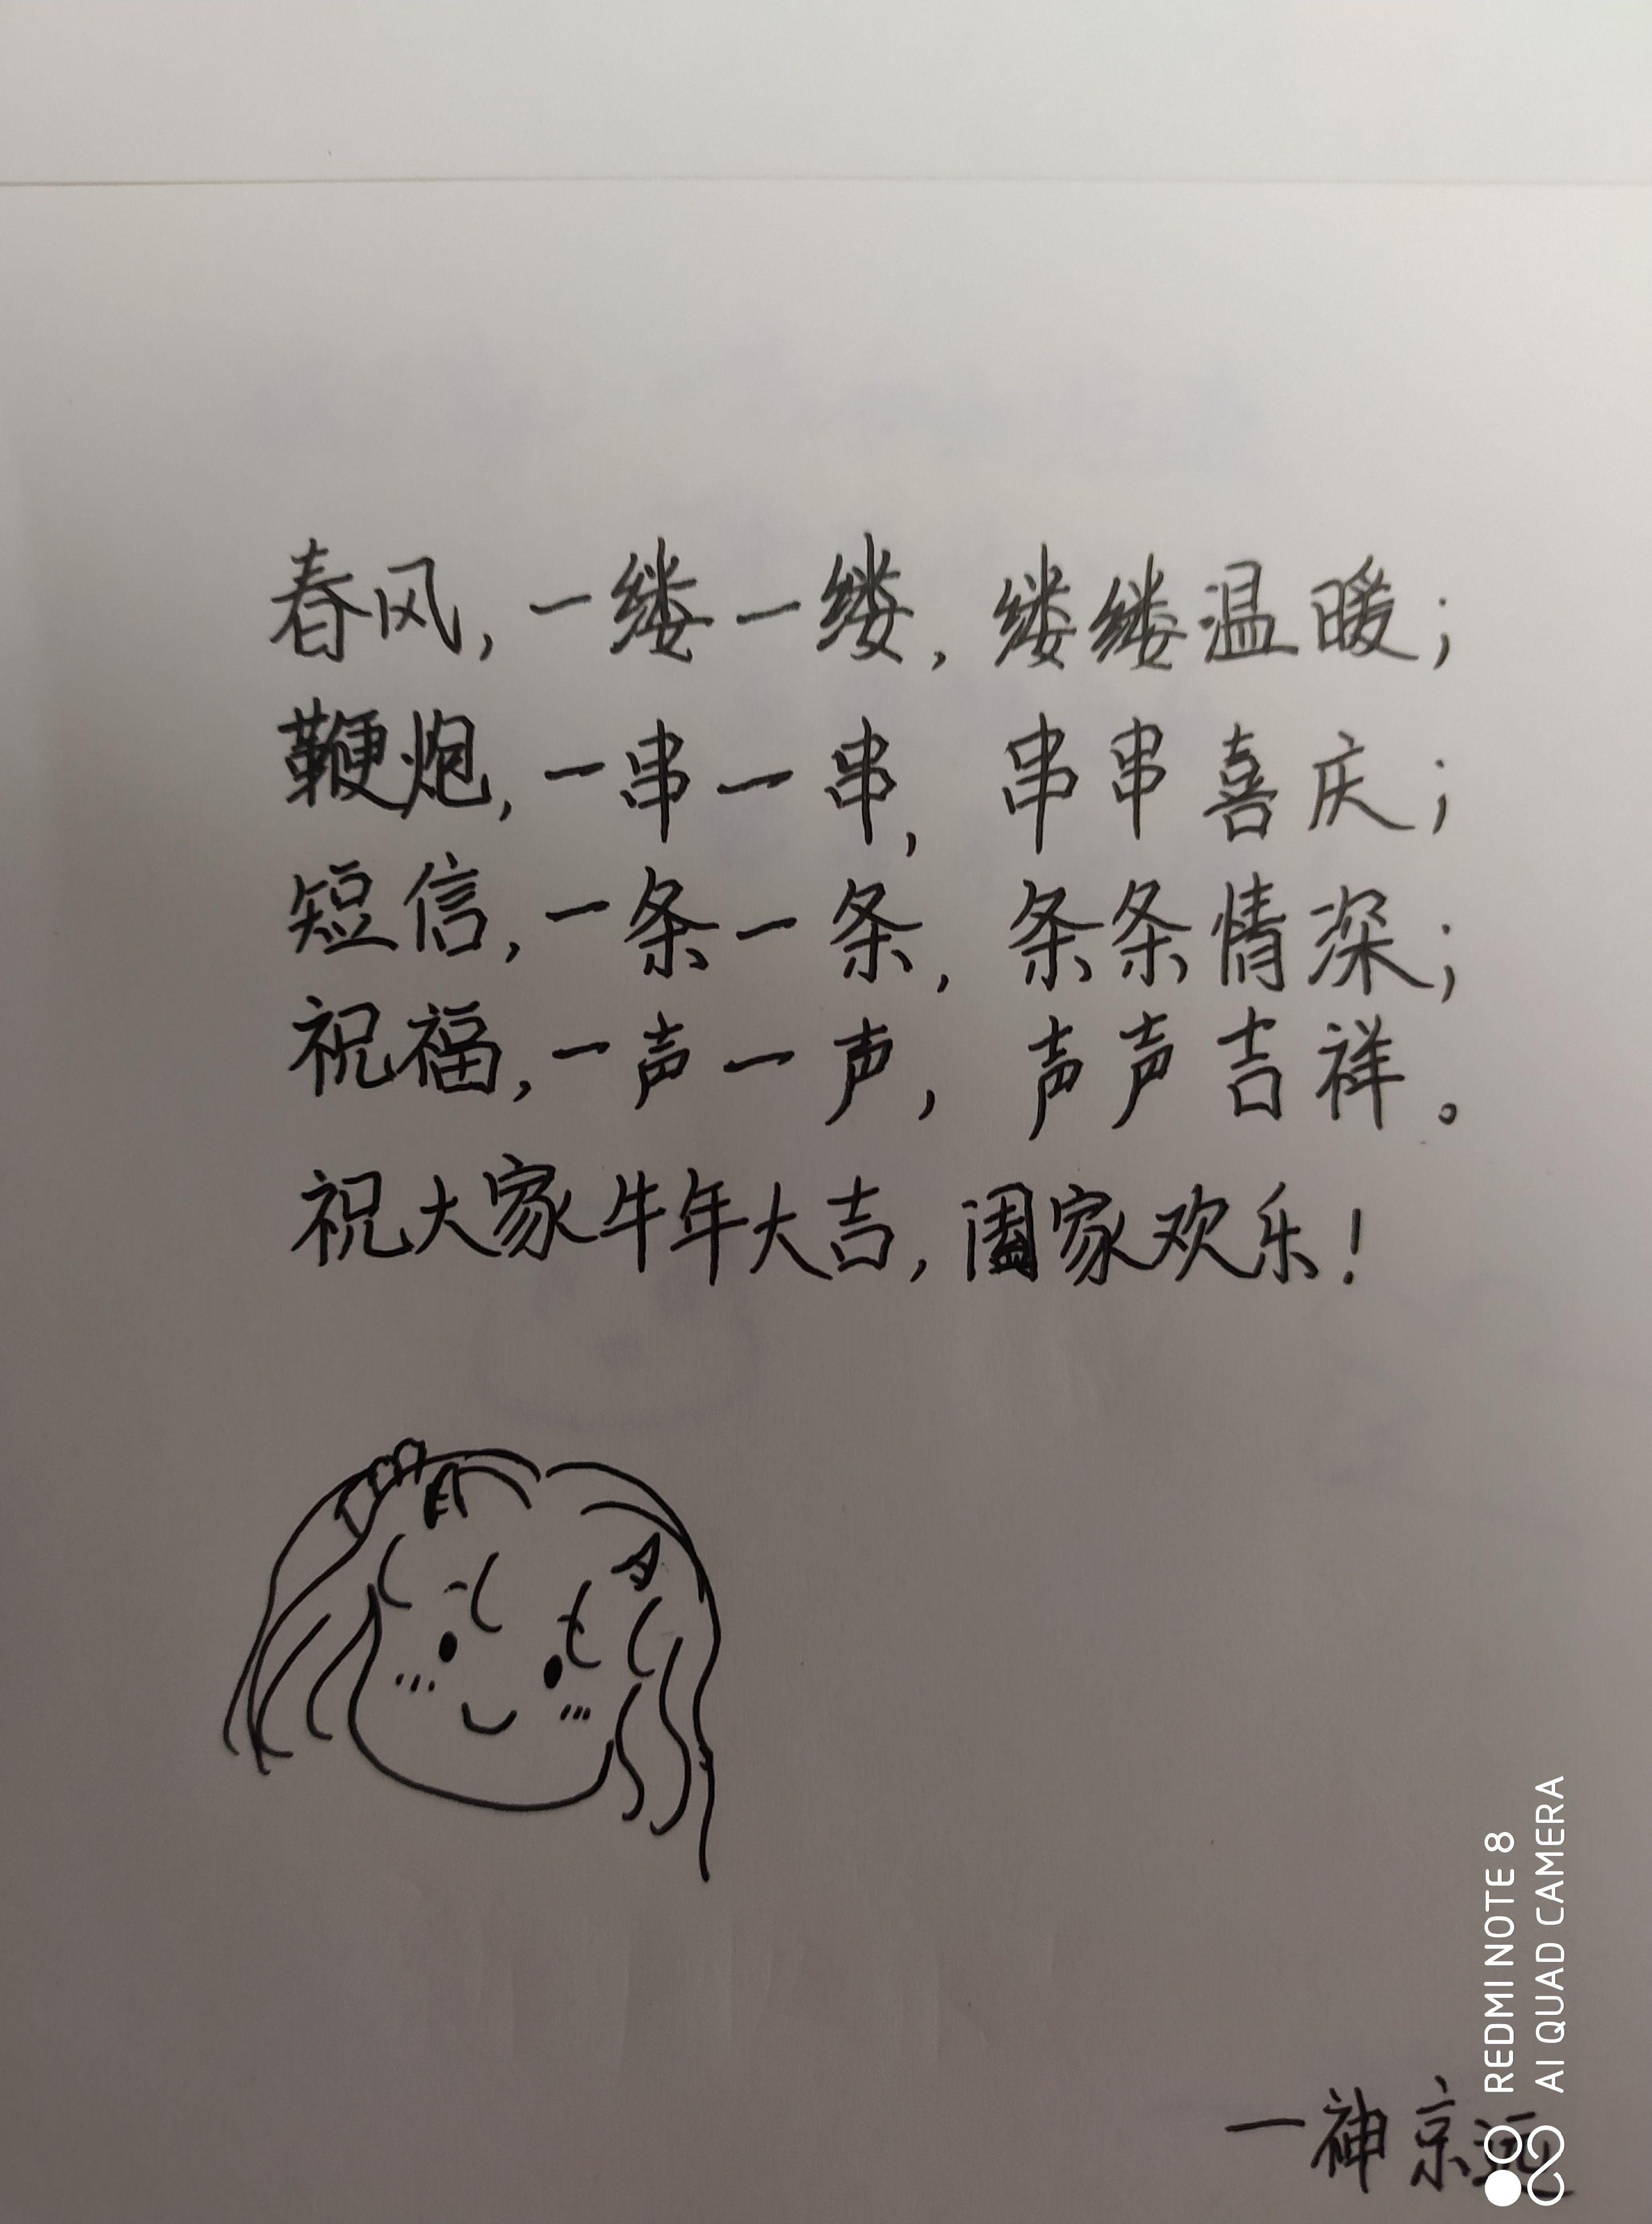 春风,一缕一缕,缕缕温暖;
鞭炮,一串一串,串串喜庆;
短信,一条一条,条条情深;
祝福,一声一声,声声吉祥。
祝大家牛年大吉,阖家欢乐!
一神京
REDMI NOTE 8
AI QUAD CAMERA